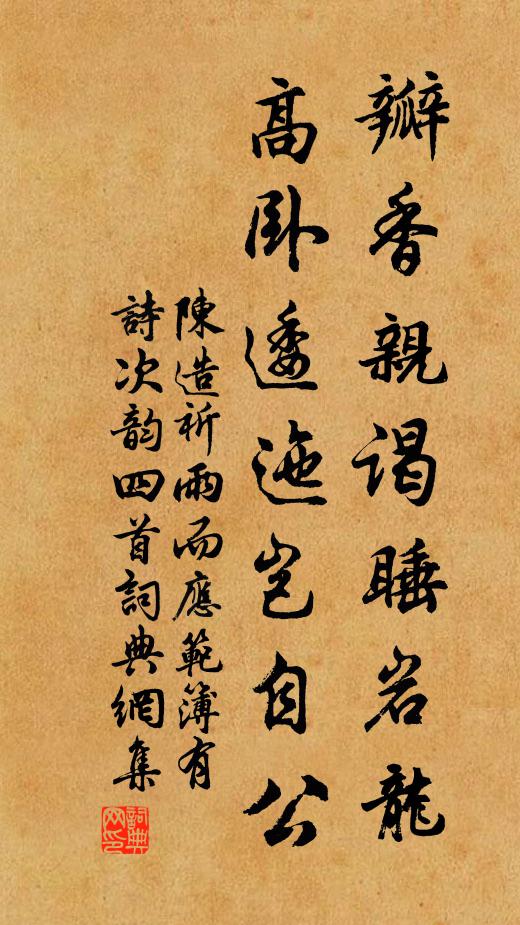 瓣香親謁睡岩龍
高卧逶迤豈自公
陳造祈雨而應範簿有
詩次韵四首詞典網集
詞典网印